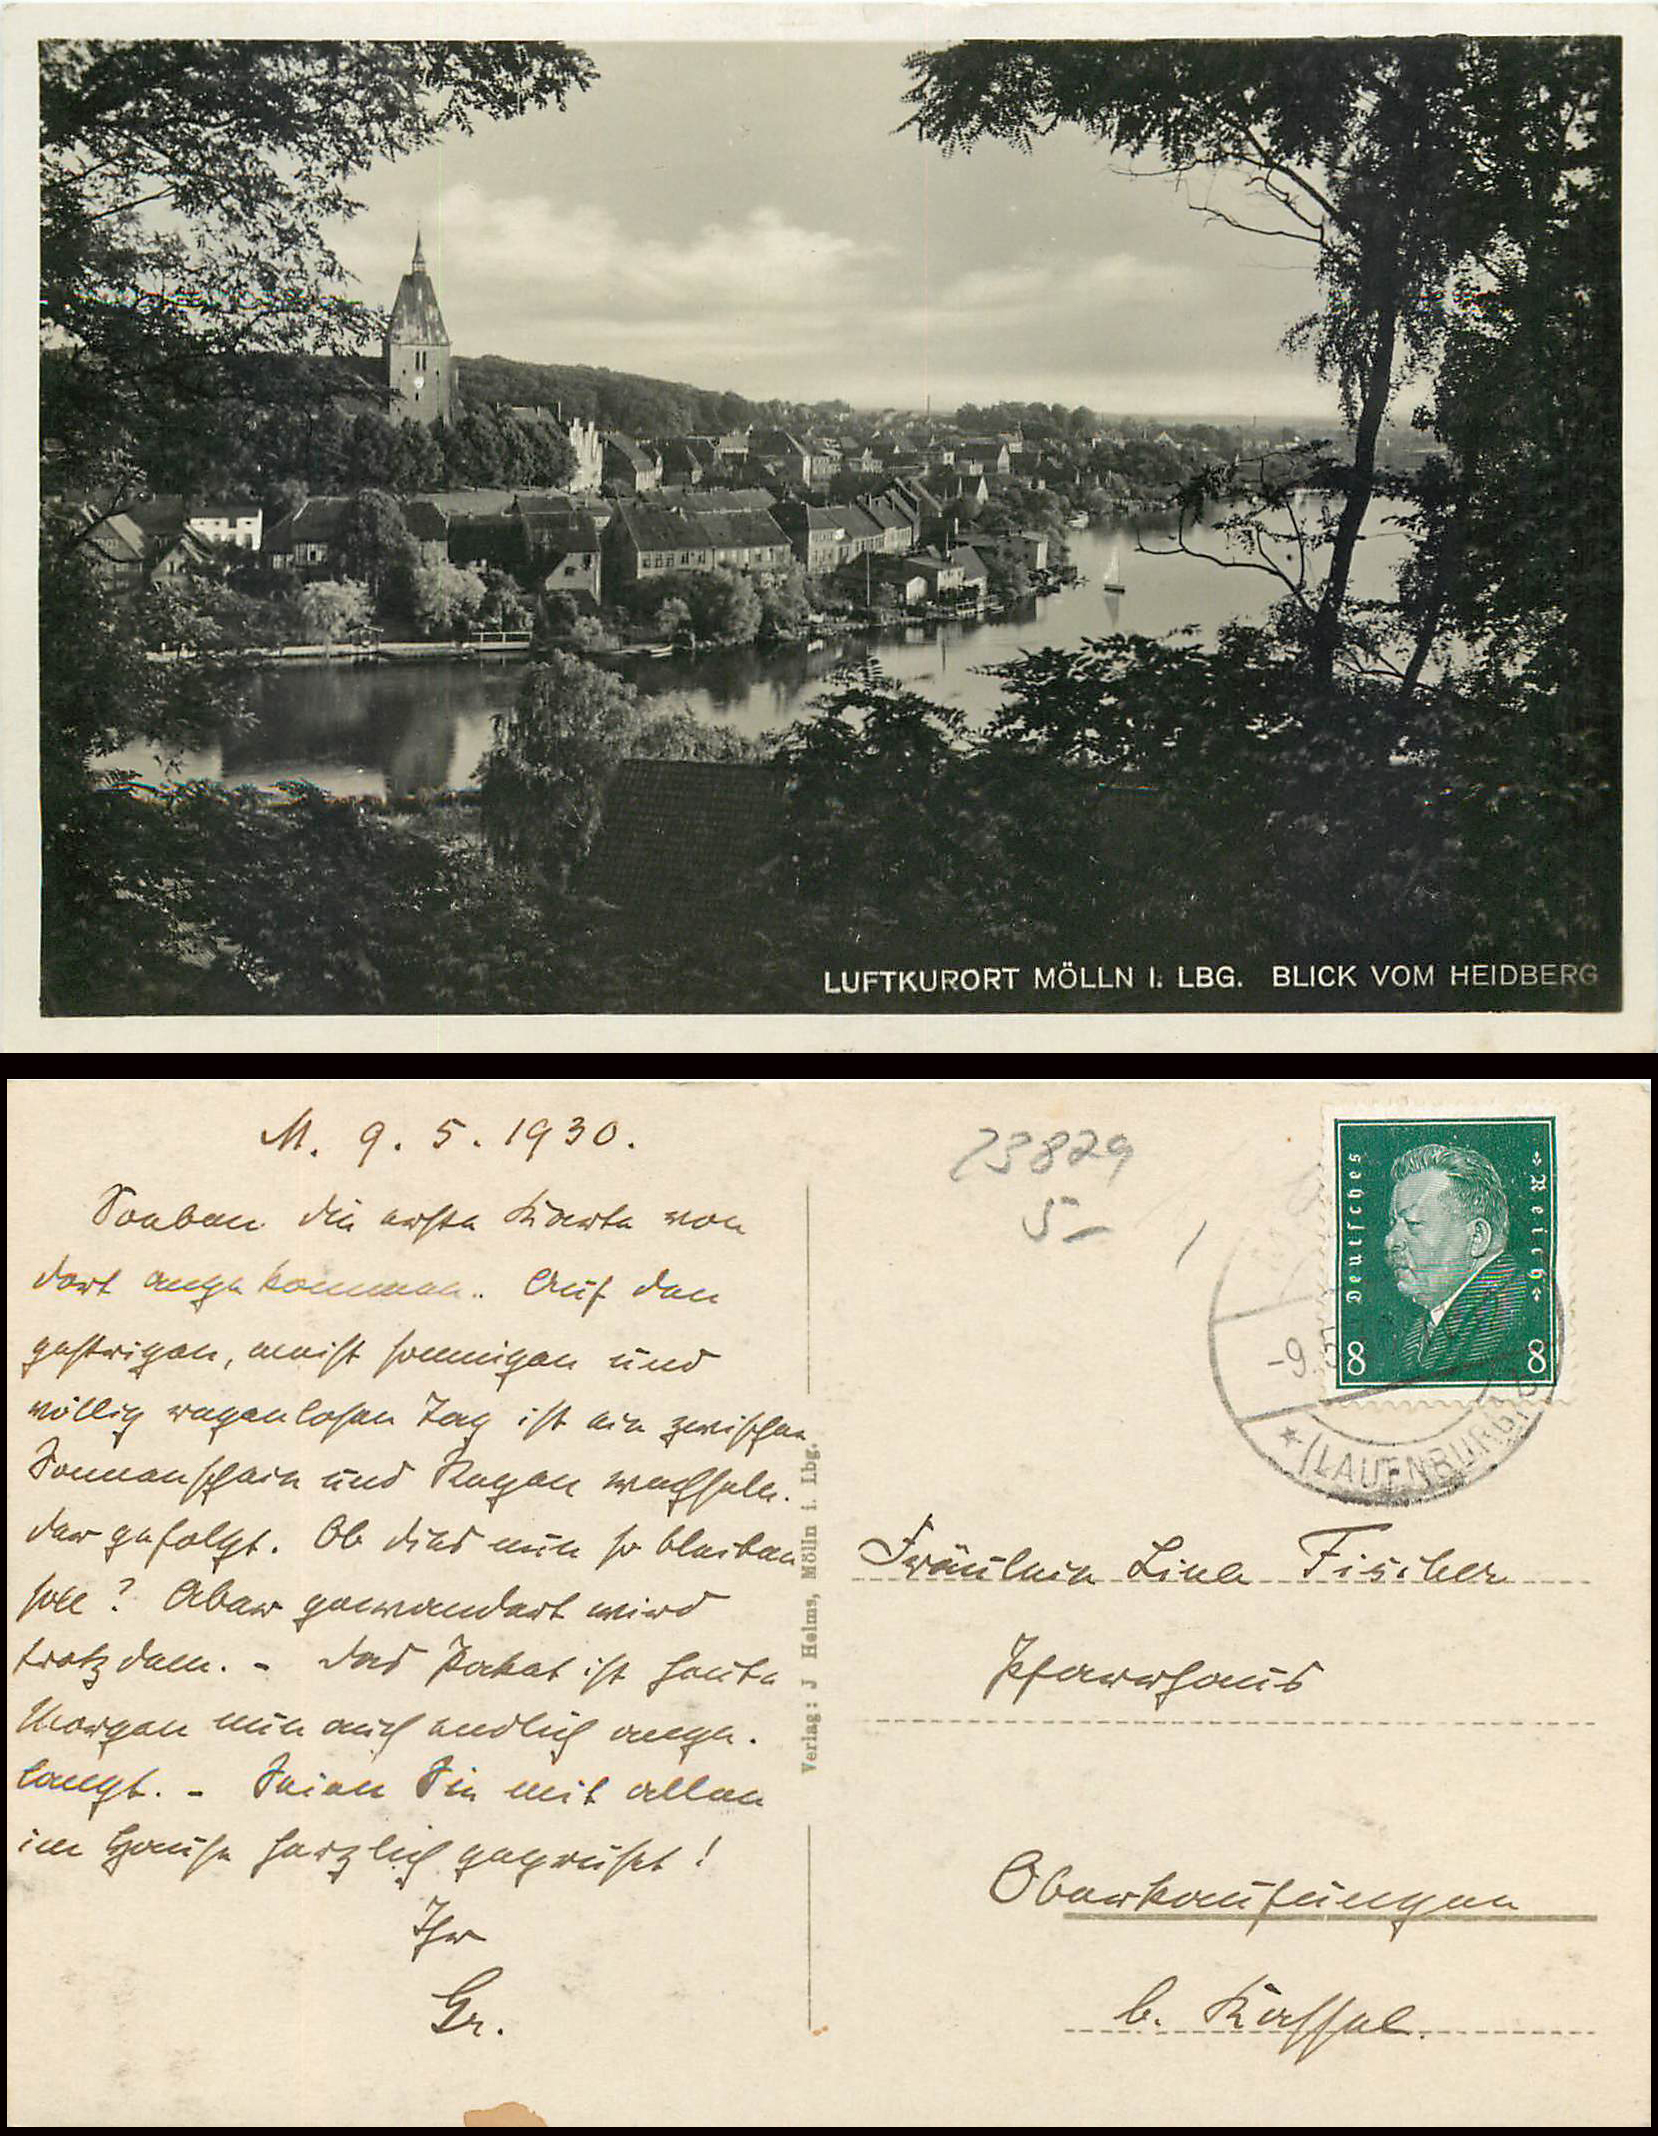 LUFTKURORT MÖLLN I. LBG. BLICK VOM HEIDBERG
M. 9. 5. 1930.
Soeben die erste Karte von
dort angekommen. Auf den
gestrigen, meist sonnigen und
völlig regenlosen Tag ist ein zwischen
Sonnenschein und Regen wechseln-
der gefolgt. Ob dies nun so bleiben
soll? Aber gewandert wird
trotzdem. - Das Paket ist heute
Morgen nun auch endlich ange-
langt. - Seien Sie mit allen
im Hause herzlich gegrüßt!
Ihr
Gr.
Verlag: J Helms, Mölln i. Lbg.
23829
5-
Deutsches Reich
8 8
-9.5
(LAUENBURG)
Fräulein Line Fischer
Pfarrhaus
Oberkaufungen
b. Kassel.